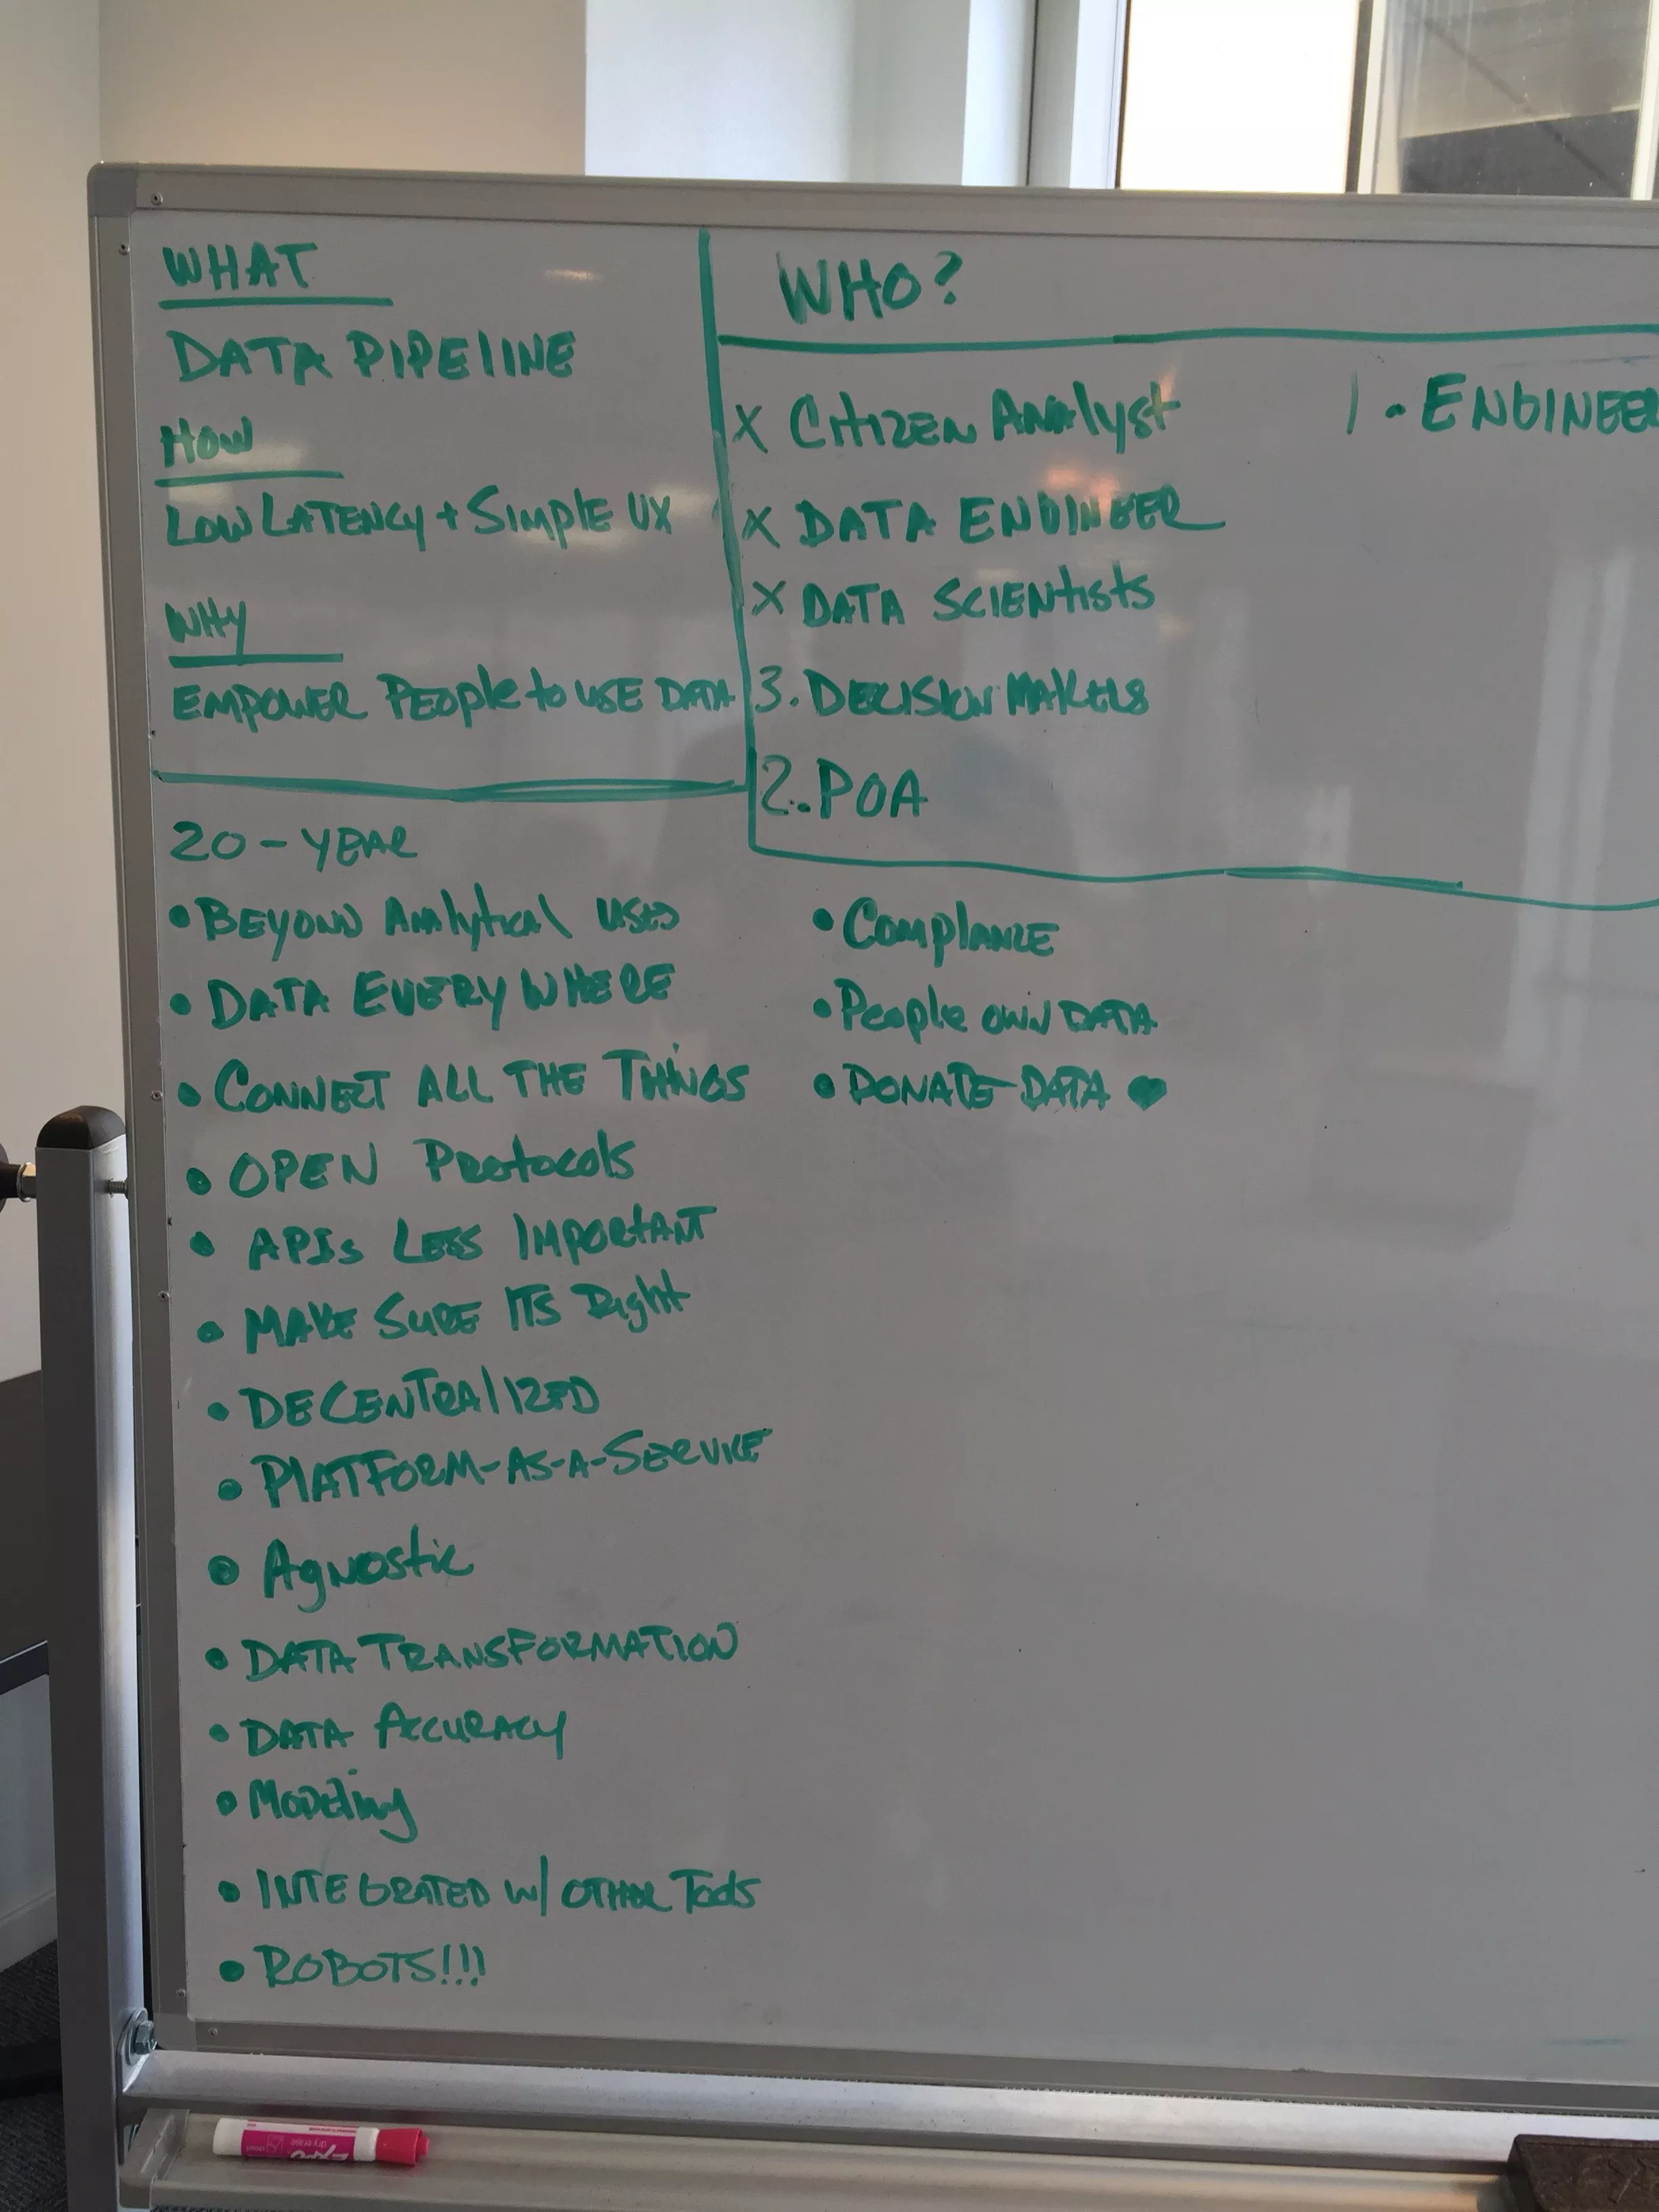 WHAT
DATA PIPELINE
HOW
LOW LATENCY + SIMPLE UX
WHY
EMPOWER PEOPLE to USE DATA
WHO?
X CITIZEN ANAlyst
1. ENGINEER
X DATA ENGINEER
X DATA SCIENtists
3. DECISION MAKERS
2. POA
20-YEAR
• BEYOND ANAlytical USES
• DATA EVERYWHERE
• CONNECT ALL THE THiNGS
• OPEN Protocols
• APIs LESS IMPORTANT
• MAKE SURE ITS Right
• DECENTRAlIZED
• PlATFORM-AS-A-SERVICE
• Agnostic
• DATA TRANSFORMATION
• DATA ACCURACY
• Modeling
• INTEGRATED w/ OTHER Tools
• ROBOTS!!!
• ComplIANCE
• People OWN DATA
• DONATE DATA ♥
EXPO
dry erase